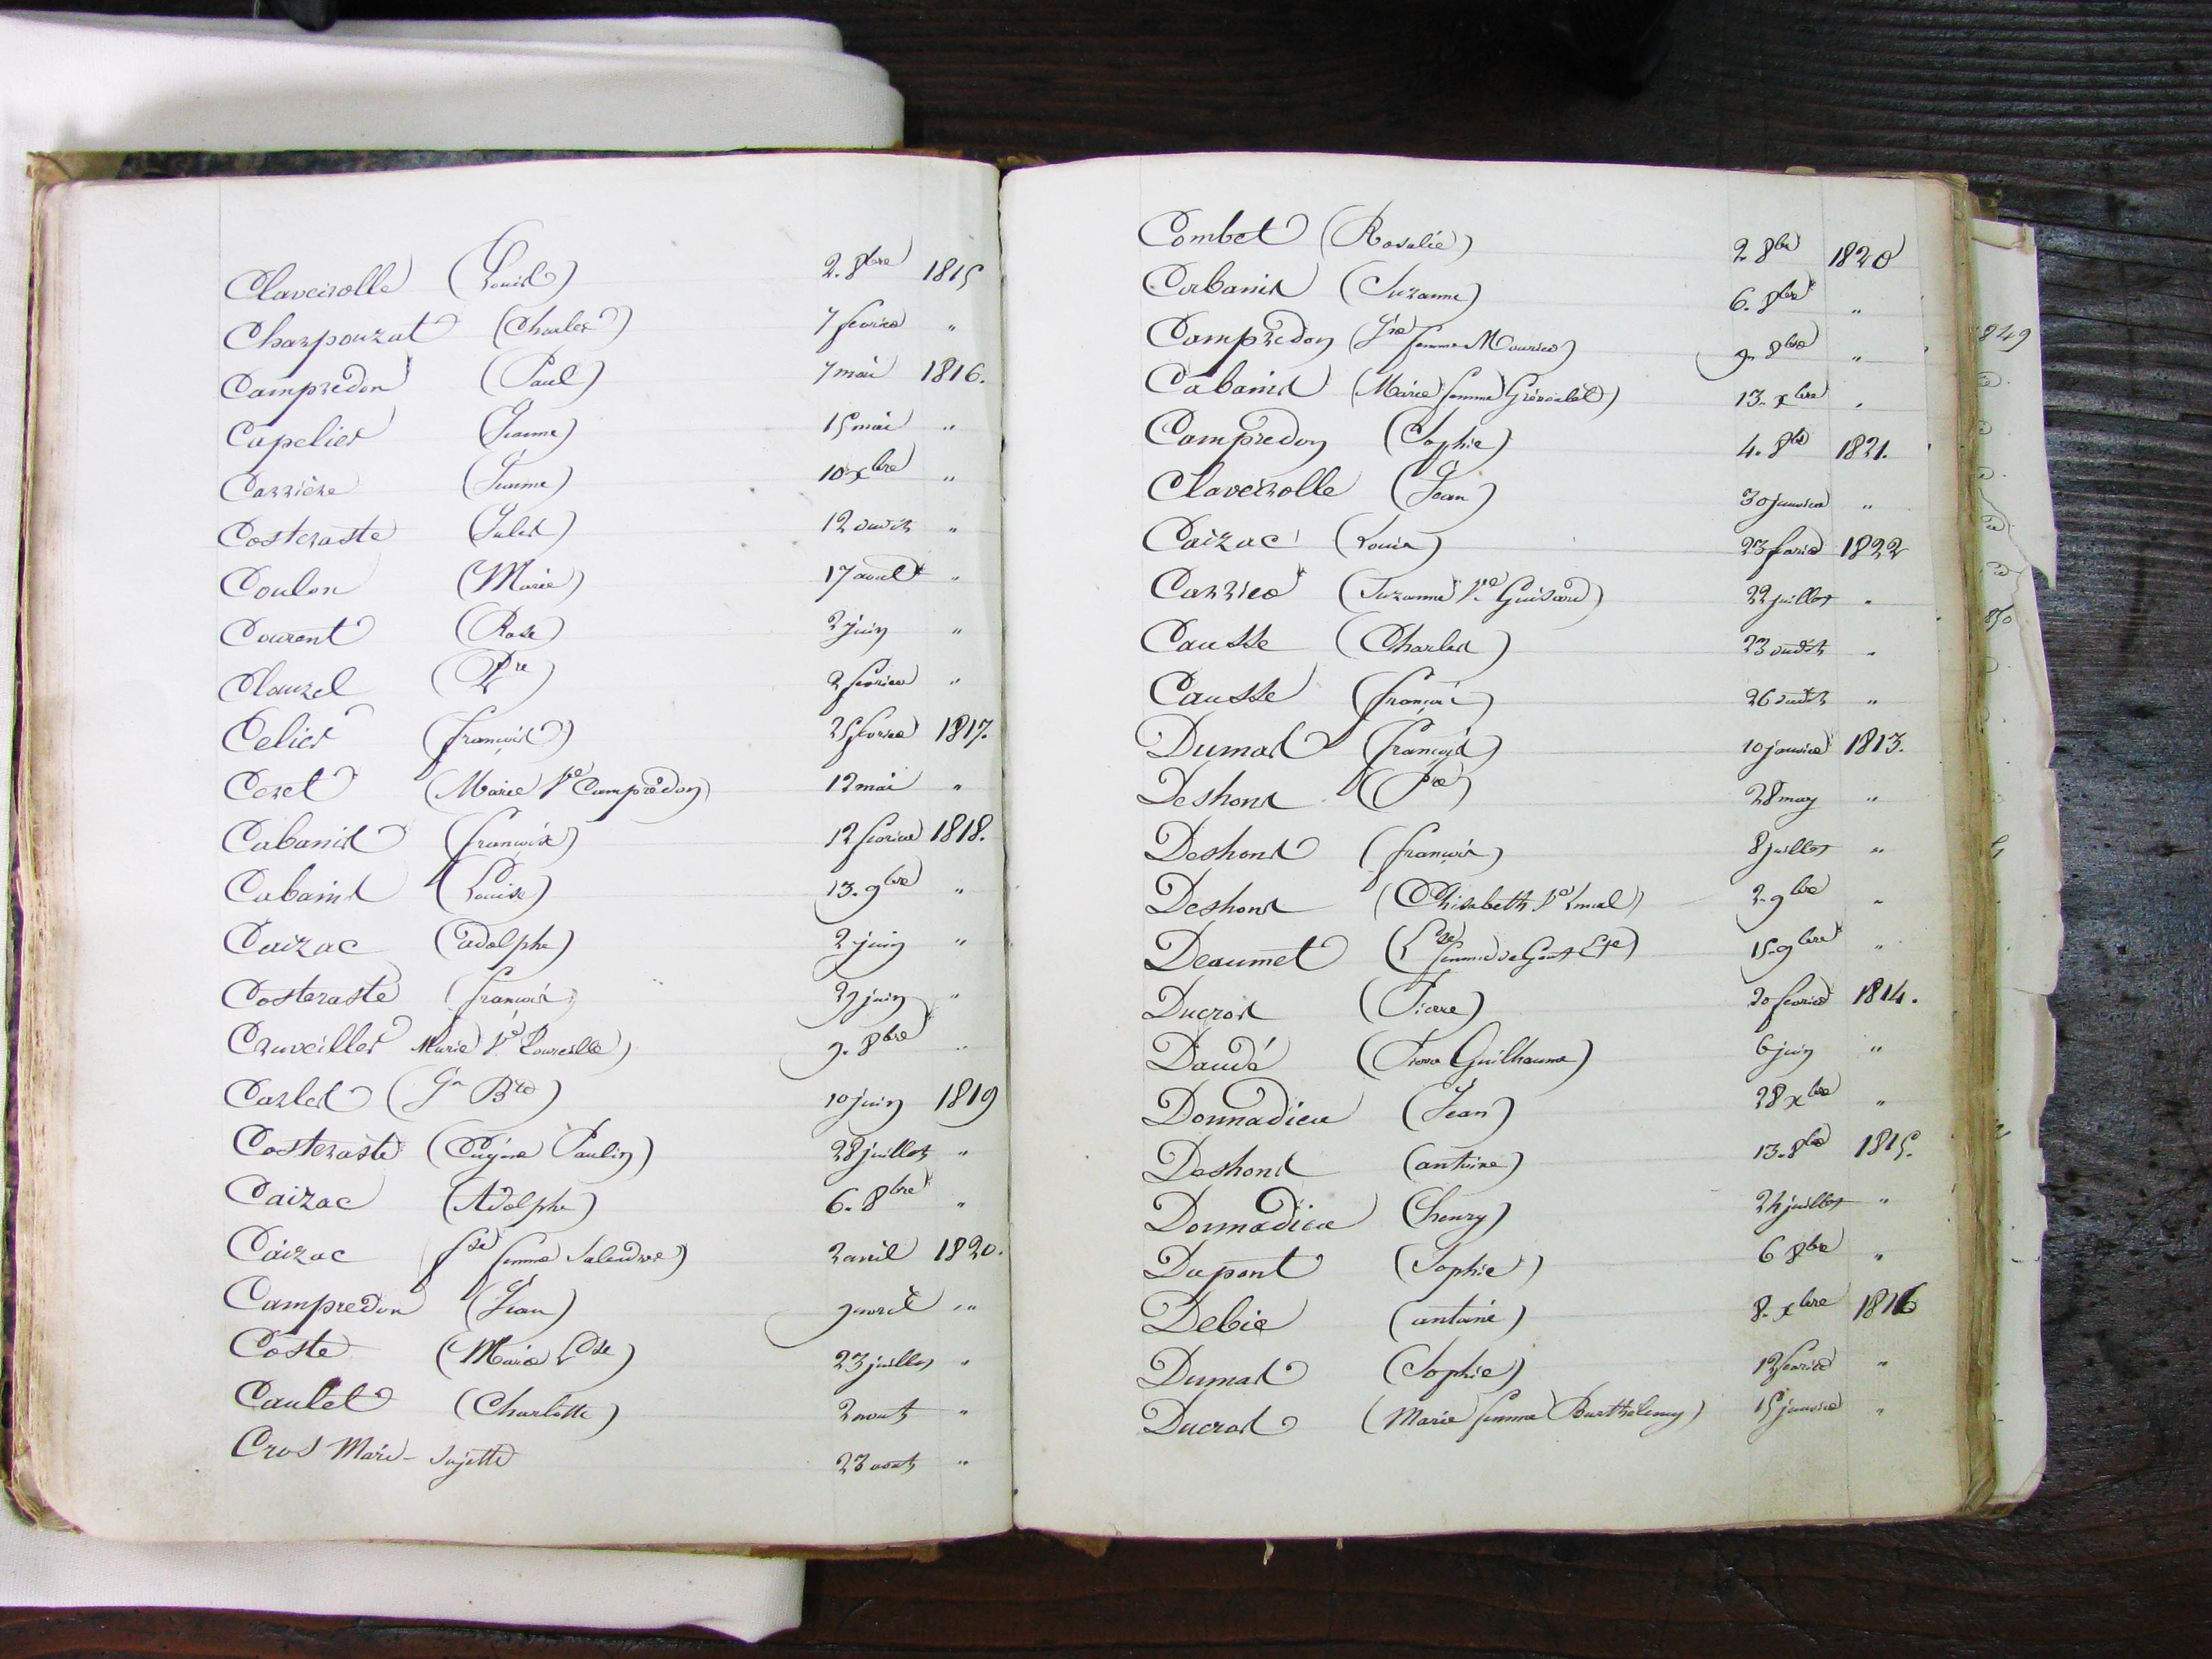 Claveirolle (Louis) 2. 8bre 1815
Charpouzat (Charles) 7 fevrier "
Campredon (Paul) 7 mai 1816.
Capelier (Jeanne) 15 mai "
Carrière (Jeanne) 10 xbre "
Costeraste (Jules) 12 août "
Coulon (Marie) 17 aout "
Courent (Rose) 2 juin "
Clauzel (Pre) 2 fevrier "
Celier (françois) 25 fevrier 1817.
Ceret (Marie Ve Campredon) 12 mai "
Cabanis (françois) 12 fevrier 1818.
Cabanis (Louise) 13. 9bre "
Caizac (adolphe) 2 juin "
Costeraste (françois) 27 juin "
Cruveiller Marie Ve 9. 8bre "
Carles (Jn Bte) 10 juin 1819
Costeraste (Eugene Paulin) 28 juillet "
Caizac (Adolphe) 6. 8bre "
Caizac (fse femme Salendre) 2 avril 1820.
Campredon (Jean) 9 avril "
Coste (Marie Lse) 23 juillet "
Caulet (Charlotte) 2 aout "
Cros Marie - Sujette 23 aout "
Combet (Rosalie) 2. 8bre 1820
Cabanis (Suzanne) 6. 8bre "
Campredon (femme Mourier) 9. 8bre "
Cabanis (Marie femme) 13. xbre "
Campredon (Sophie) 4. 8bre 1821.
Claveirolle (Jean) 30 janvier "
Caizac (Louis) 23 fevrier 1822
Carrier (Suzanne Ve Guisard) 22 juillet "
Causse (Charles) 23 août "
Causse (françois) 26 août "
Dumas (françois) 10 janvier 1813.
Deshons (Pre) 28 may "
Deshons (françois) 8 juillet "
Deshons (Elisabeth Ve) 2. 9bre "
Deaumet (Lse femme de) 15. 9bre "
Ducros (Pierre) 20 fevrier 1814.
Daudé (Pierre Guilhaume) 6 juin "
Donnadieu (Jean) 28 xbre "
Deshons (antoine) 13. 8bre 1815.
Donnadieu (henry) 24 juillet "
Dupont (Sophie) 6 8bre "
Debie (antoine) 8. xbre 1816
Dumas (Sophie) 12 fevrier "
Ducros (Marie femme Barthelemy) 15 janvier "